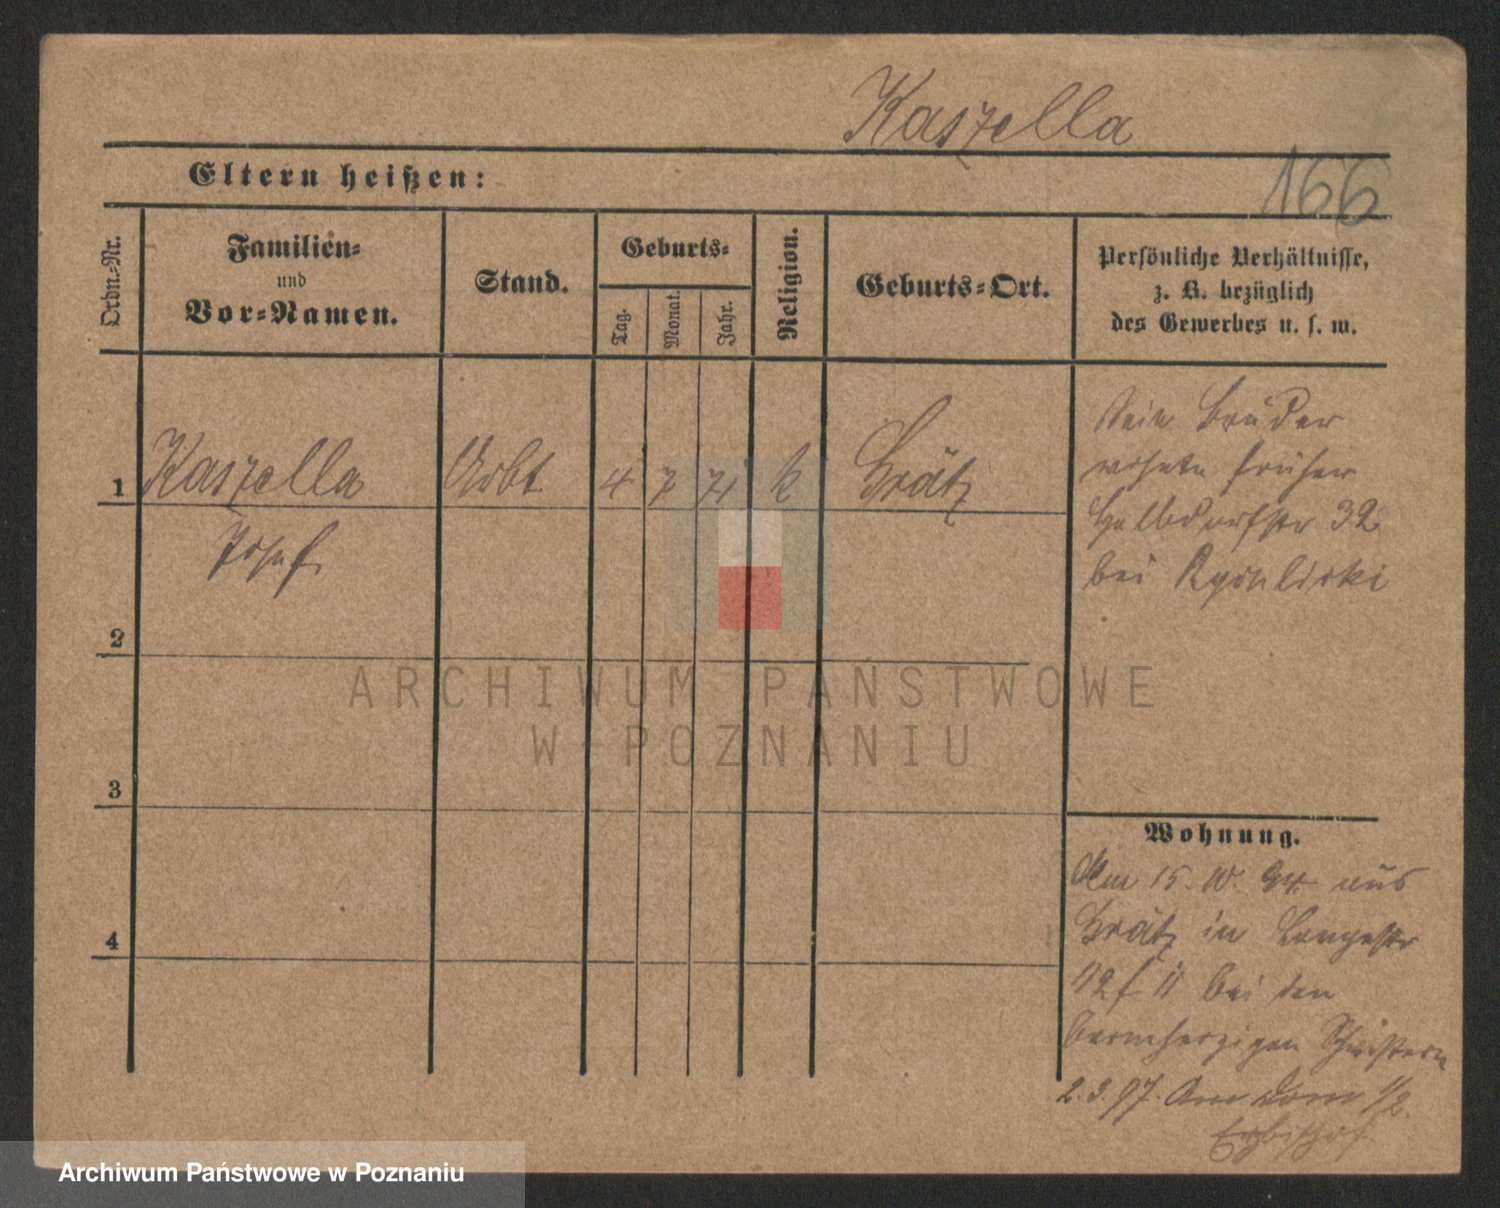 Kaszella
166
Eltern heißen:
Ordn.-Nr.
Familien-
und
Vor-Namen.
Stand.
Geburts-
Tag.
Monat.
Jahr.
Religion.
Geburts-Ort.
Persönliche Verhältnisse,
z. B. bezüglich
des Gewerbes u. s. w.
1 Kaszella Arbt. 4 7 71 k Grätz
Josef
Sein Bruder
wohnte früher
Halbdorfstr 32
bei
2
3
4
Wohnung.
Am 15. 10. 94. aus
Grätz in Langestr
bei den
barmherzigen Schwestern
2. 3. 97. Am Dom 1/2.
Erzbischof
ARCHIWUM PAŃSTWOWE
W POZNANIU
Archiwum Państwowe w Poznaniu